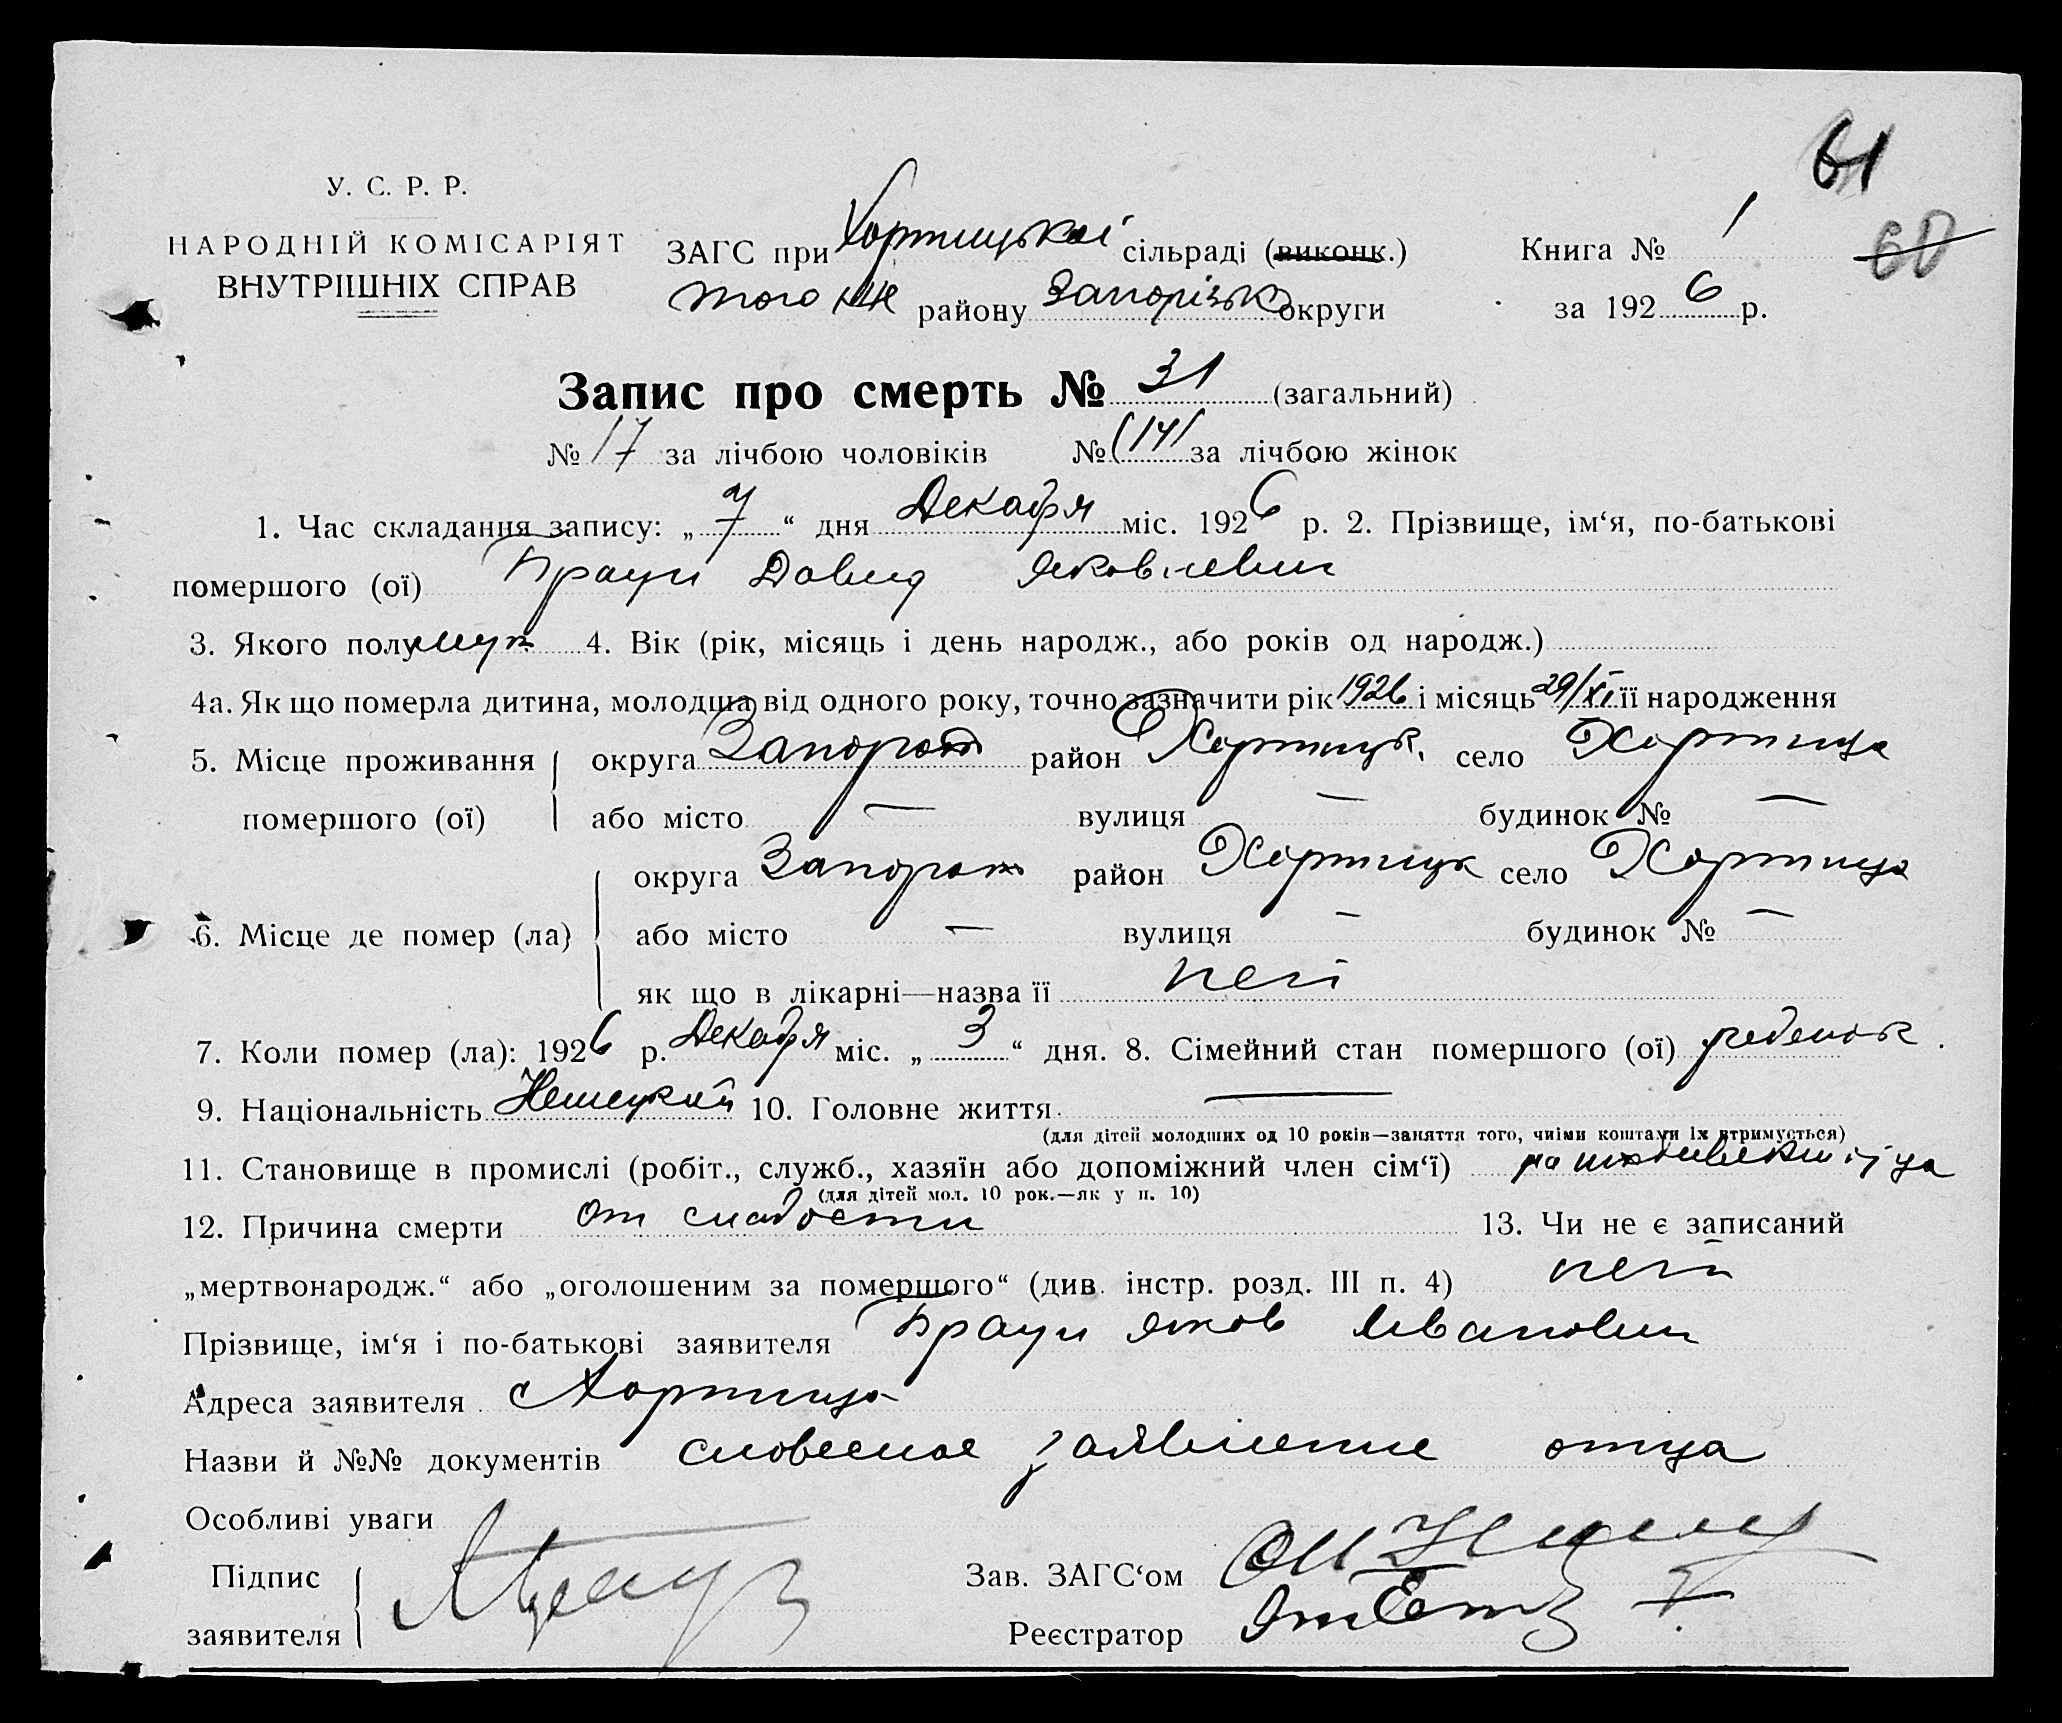 61
60
У. С. Р. Р.
НАРОДНІЙ КОМІСАРІЯТ
ВНУТРІШНІХ СПРАВ
ЗАГС при Хортицької сільраді (виконк.)
того же району Запорізьк округи
Книга № 1
за 1926 р.
Запис про смерть № 31 (загальний)
№ 17 за лічбою чоловіків № (14) за лічбою жінок
1. Час складання запису: „ 7 “ дня Декабря міс. 1926 р. 2. Прізвище, ім‘я, по-батькові
помершого (ої) Браун Давид Яковлевич
3. Якого полу муж. 4. Вік (рік, місяць і день народж., або років од народж.)
4а. Як що померла дитина, молодша від одного року, точно зазначити рік 1926 і місяць 29/XI її народження
5. Місце проживання округа Запорож район Хортицк. село Хортица
помершого (ої) або місто — вулиця — будинок № —
округа Запорож район Хортицк село Хортица
6. Місце де помер (ла) або місто — вулиця — будинок № —
як що в лікарні—назва її нет
7. Коли помер (ла): 1926 р. Декабря міс. „ 3 “ дня. 8. Сімейний стан помершого (ої) ребенок.
9. Національність Немецкий 10. Головне життя —
(для дітей молодших од 10 років—заняття того, чиїми коштами їх втримується)
11. Становище в промислі (робіт., служб., хазяїн або допоміжний член сім‘ї) на иждивении отца
(для дітей мол. 10 рок.—як у п. 10)
12. Причина смерти От слабости 13. Чи не є записаний
„мертвонародж.“ або „оголошеним за помершого“ (див. інстр. розд. III п. 4) нет
Прізвище, ім‘я і по-батькові заявителя Браун Яков Иванович
Адреса заявителя с Хортица
Назви й №№ документів словесное заявление отца
Особливі уваги
Підпис
заявителя
Зав. ЗАГС‘ом
Реєстратор